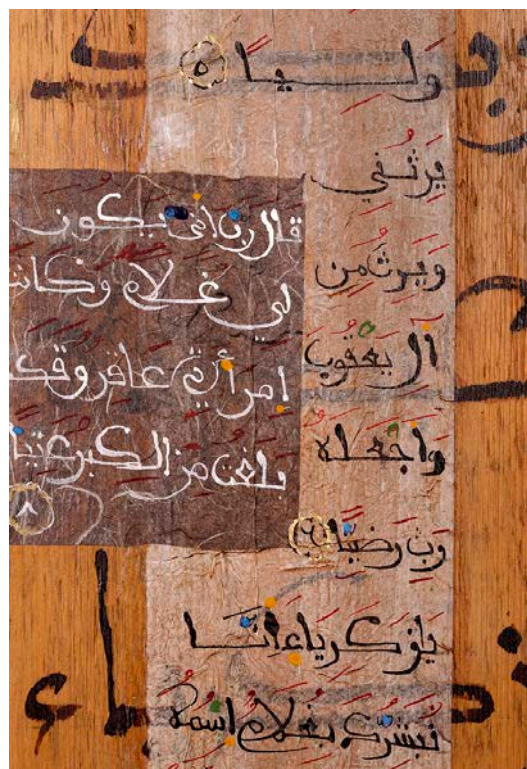 وليا ٥
يرثني
ويرث من
آل يعقوب
واجعله
رب رضيا ٦
يا زكرياء انا
نبشرك بغلام اسمه
قال رب انى يكون
لي غلام وكانت
امرأتي عاقرا وقد
بلغت من الكبر عتيا
٨